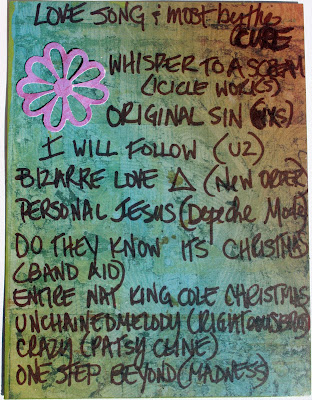 LOVE SONG & most by the
CURE
WHISPER TO A SCREAM
(ICICLE WORKS)
ORIGINAL SIN (INXS)
I WILL FOLLOW (U2)
BIZARRE LOVE △ (NEW ORDER)
PERSONAL JESUS (Depeche Mode)
DO THEY KNOW ITS CHRISTMAS
(BAND AID)
ENTIRE NAT KING COLE CHRISTMAS
UNCHAINED MELODY (RIGHTEOUS BROS)
CRAZY (PATSY CLINE)
ONE STEP BEYOND (MADNESS)